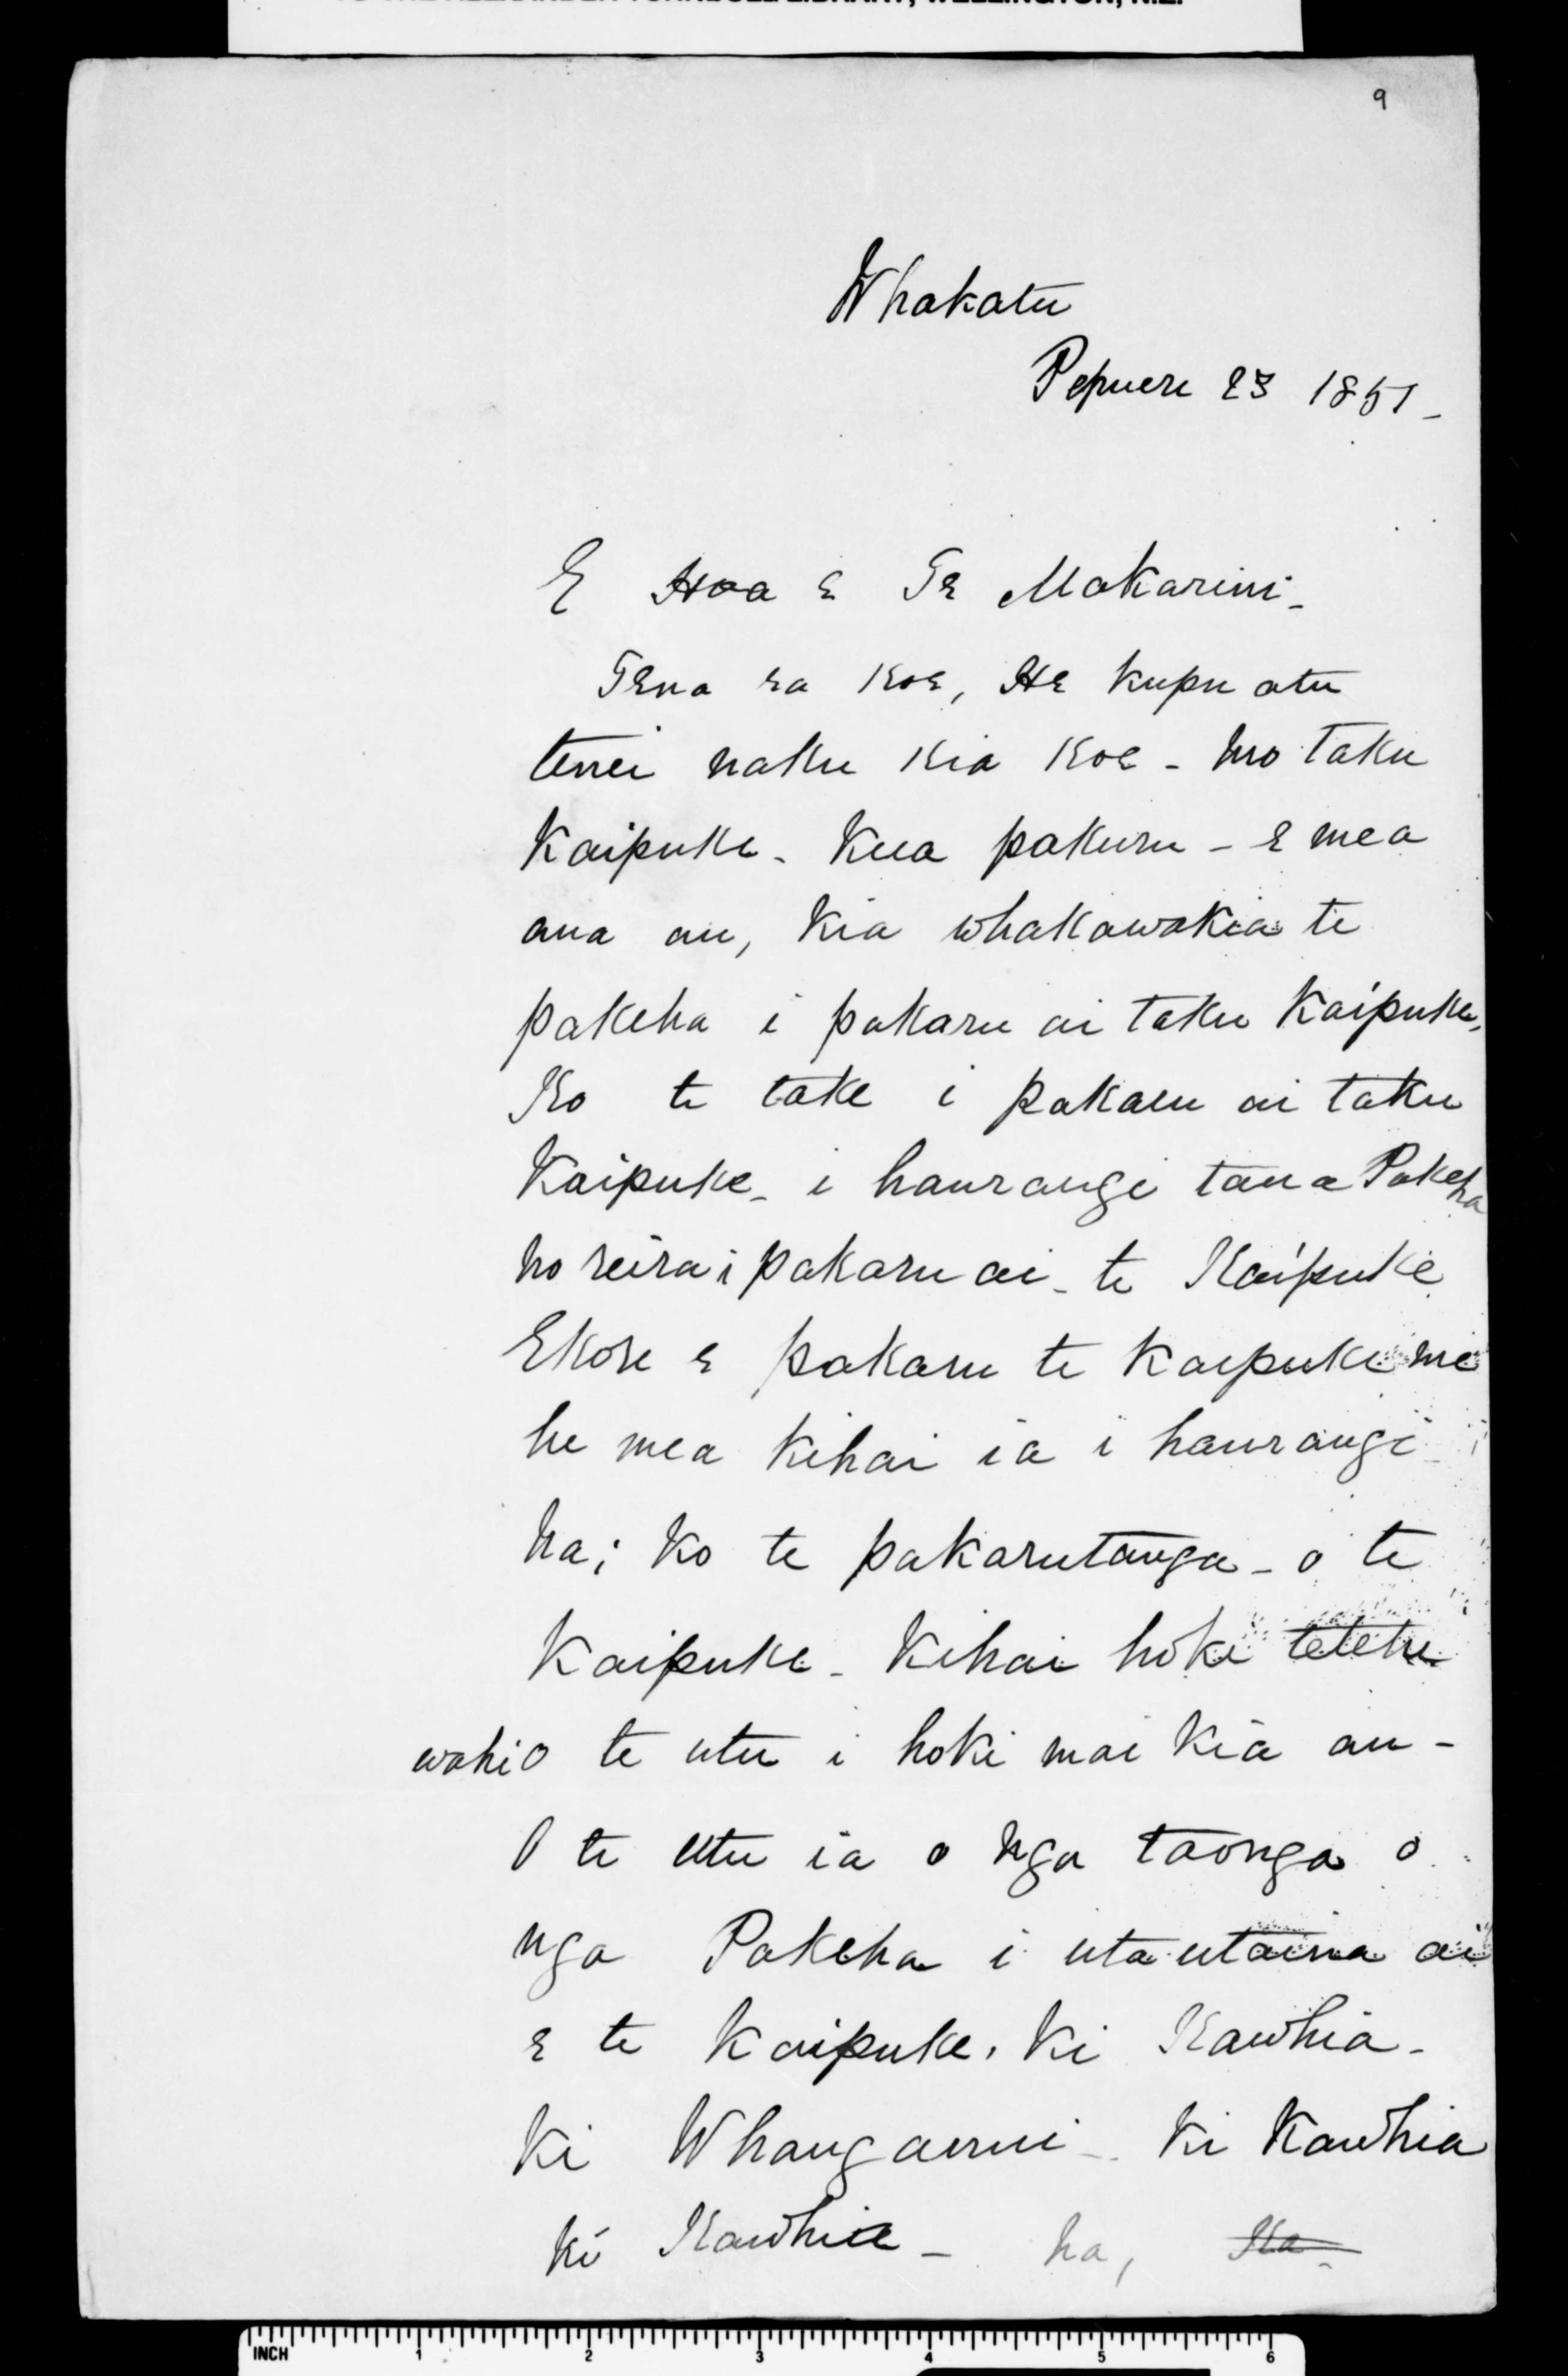 TO THE ALEXANDER TURNBULL LIBRARY, WELLINGTON, N.Z.
9
Whakatu
Pepuere 23 1851_
E Hoa E Te Makarini_
Tena ra koe, He kupu atu
tenei naku kia koe - mo taku
Kaipuke - Kua pakuru - E mea
ana au, kia whakawakia te
pakeha i pakaru ai taku Kaipuke,
Ko te take i pakaru ai taku
Kaipuke - i haurangi taua Pakeha
no reira i pakaru ai - te Kaipuke
Ekore e pakaru te Kaipuke me
he mea kihai ia i haurangi
Na; ko te pakarutanga - o te
Kaipuke - Kihai hoki tetehi
wahi o te utu i hoki mai kia au -
O te utu ia o nga taonga o
nga Pakeha i utautaina ai
e te Kaipuke, ki Kawhia -
ki Whanganui - ki Kawhia
ki Kawhia - na, Ka
INCH 1 2 3 4 5 6